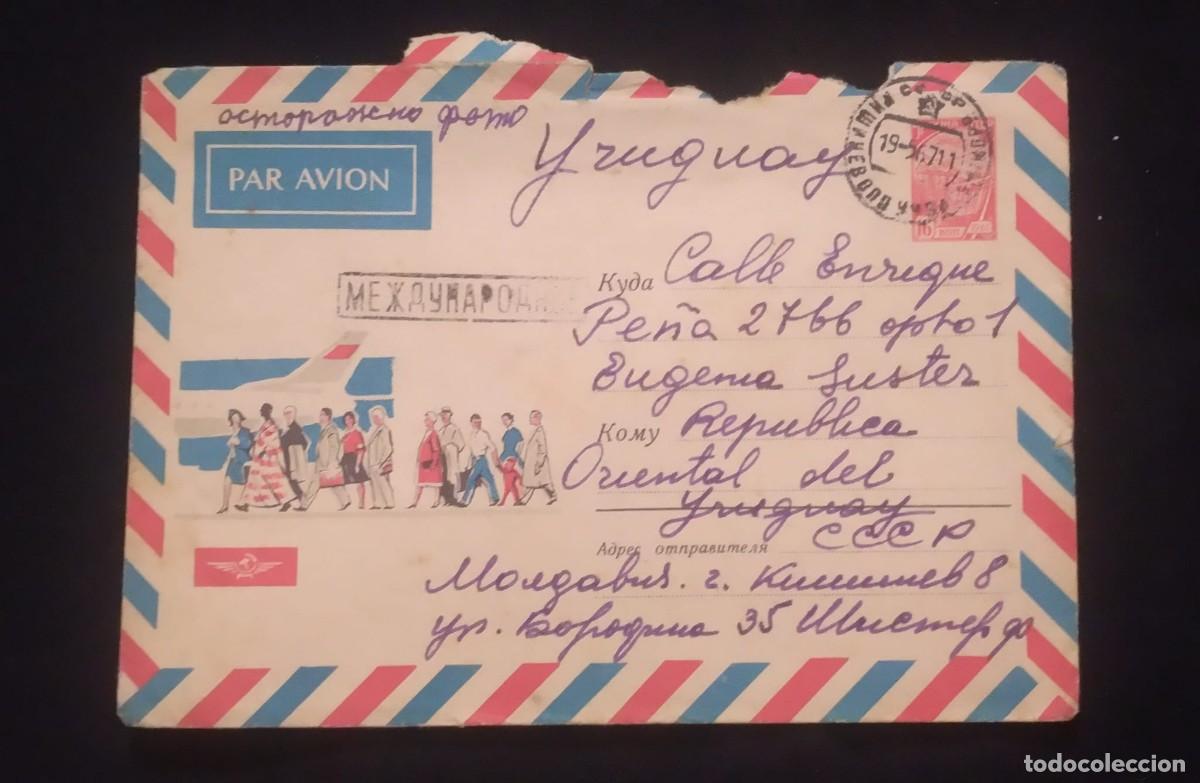 осторожно фото
PAR AVION
Uruguay
19-5 71
16 коп
МЕЖДУНАРОДН
Куда Calle Enrique
Peña 2766 apto 1
Eugenia Suster
Кому Republica
Oriental del
Uruguay
Адрес отправителя СССР
Молдавия. г. Кишинев 8
ул. Бородина 35 Шистер ф
todocoleccion